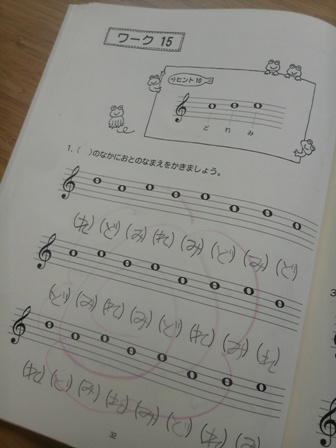 ワーク 15
ヒント 15
ど れ み
1. ( )のなかにおとのなまえをかきましょう。
(れ)(ど)(み)(れ)(み)(ど)(み)(ど)
(ど)(み)(れ)(み)(ど)(れ)(み)(れ)
(れ)(ど)(み)(れ)(み)(ど)(れ)(み)
32